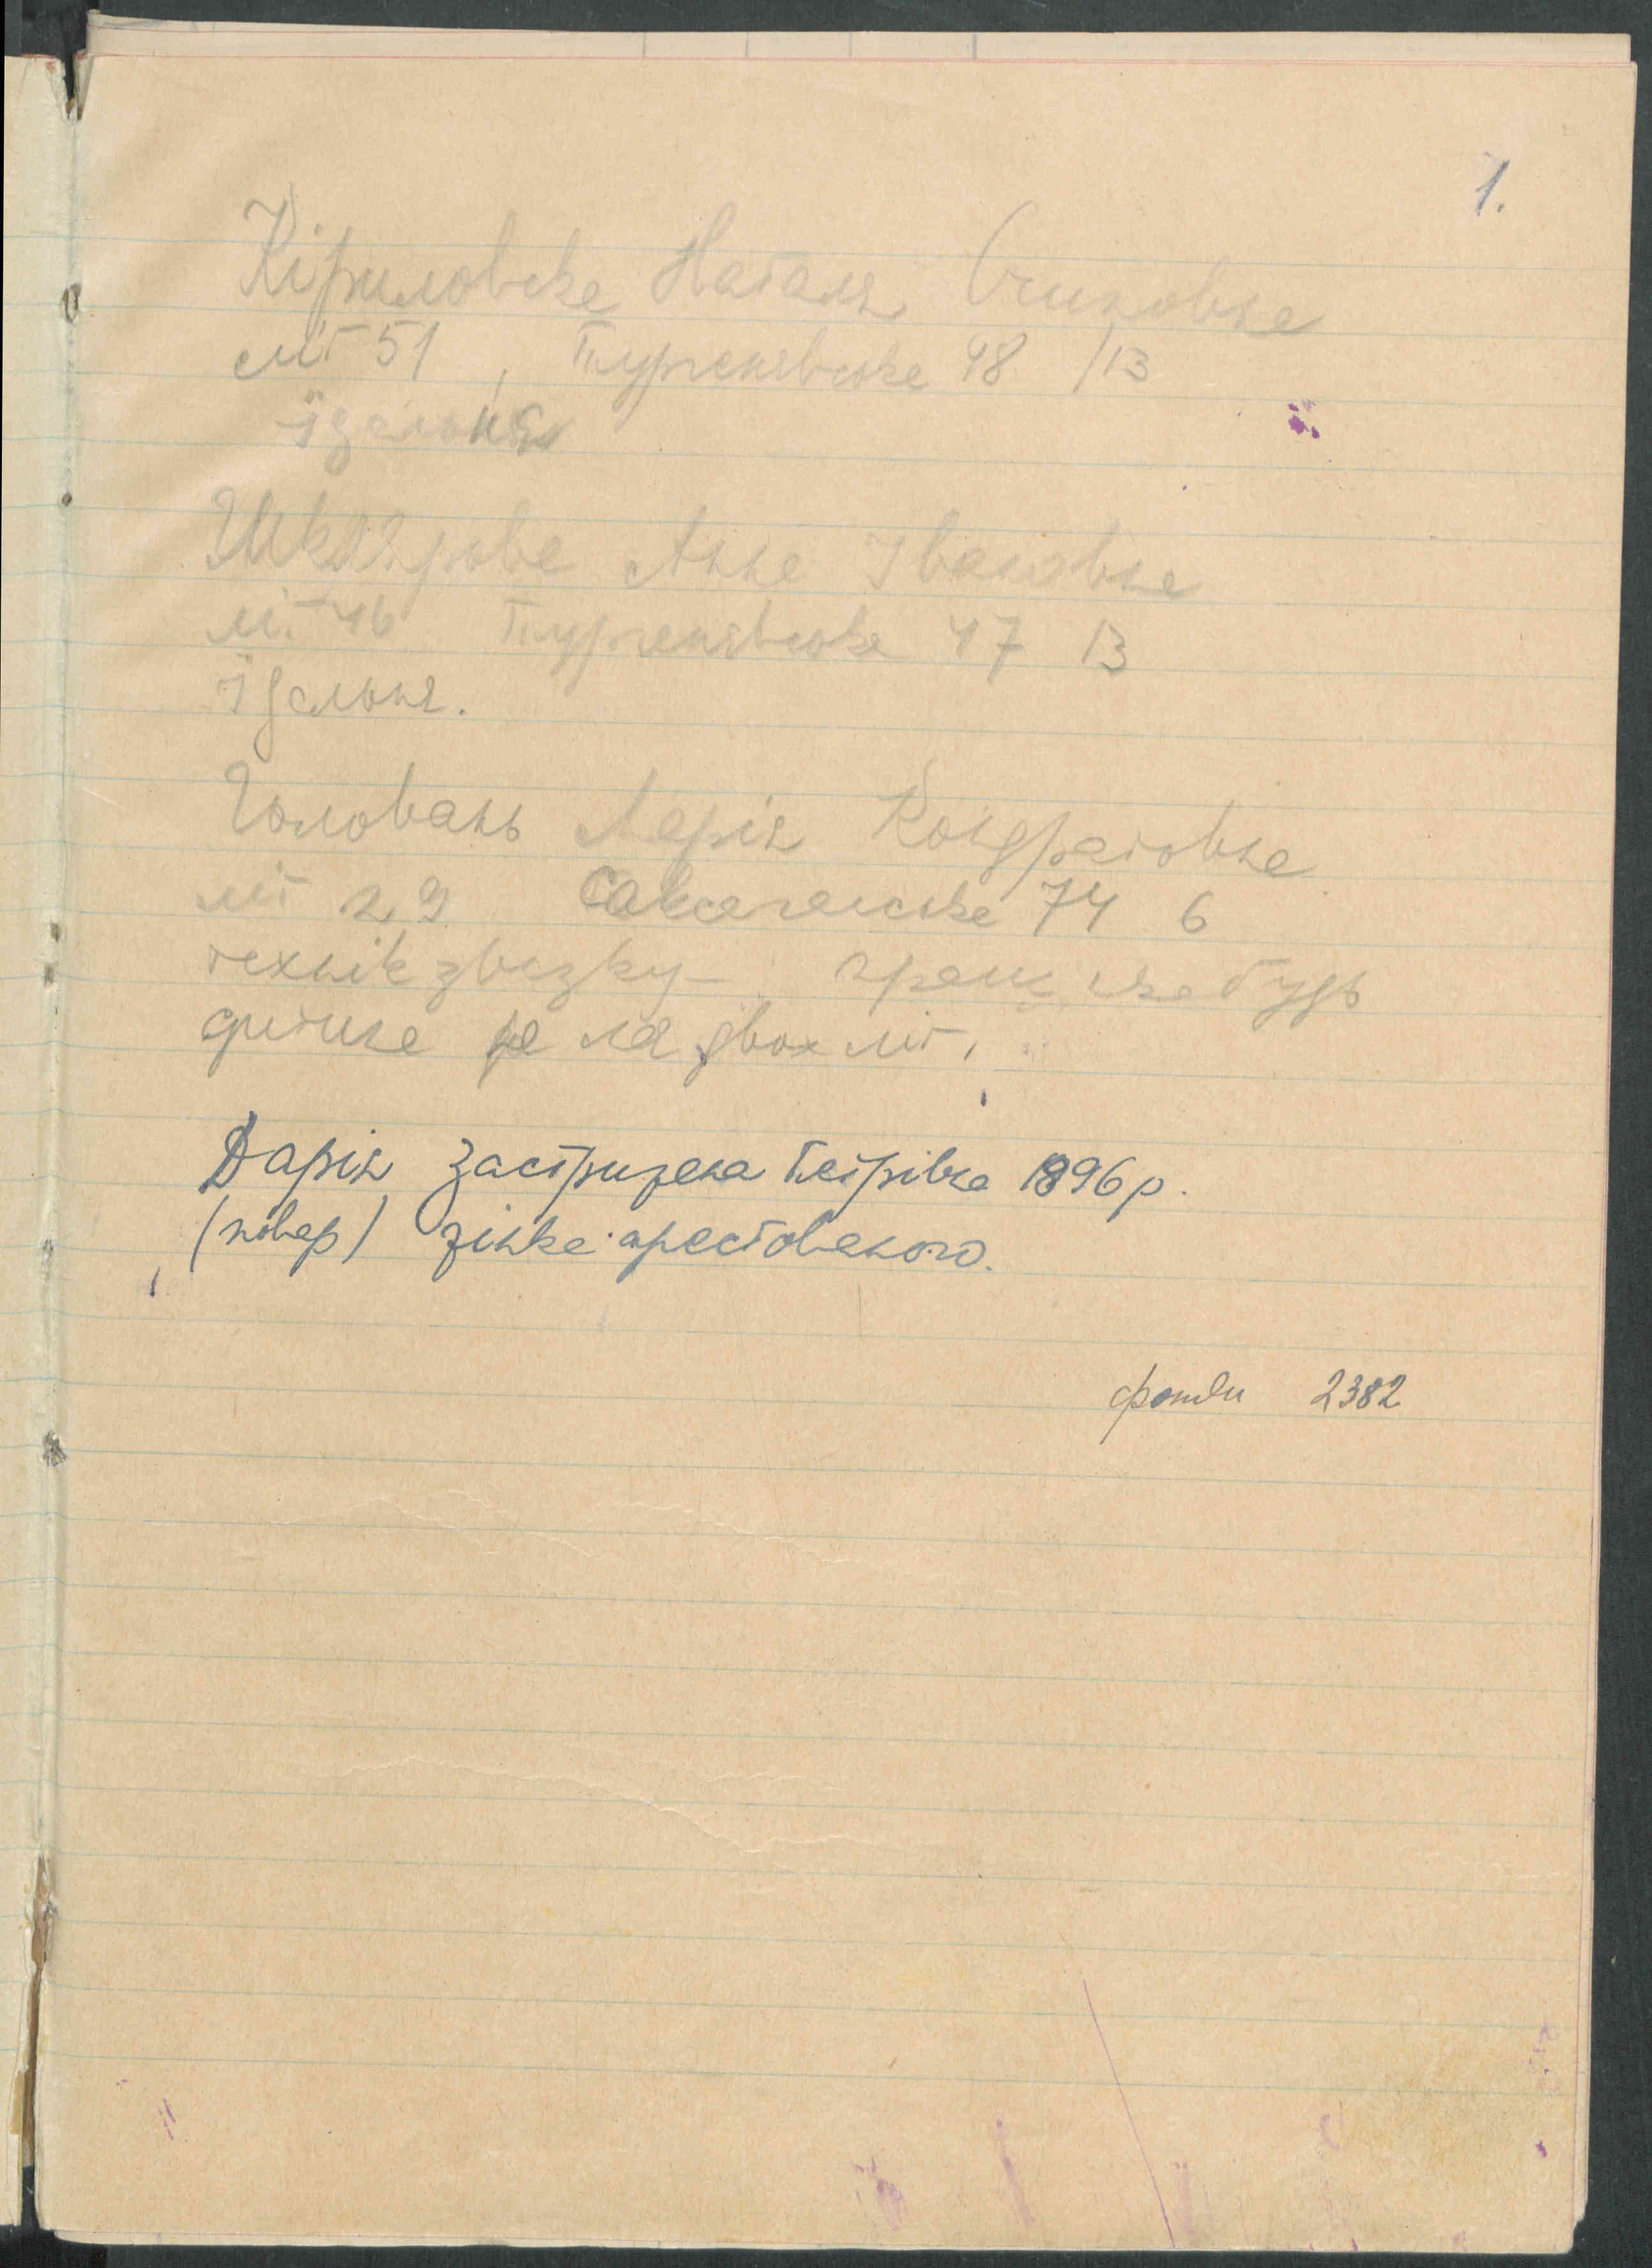 1.
Кіриловська Наталя Осиповна
літ 51, Тургенівська 48 /13
їдальня
Шклярова Анна Івановна
літ 46 Тургенівська 47 13
їдальня.
Головань Марія Кондратовна
літ 29 Саксаганська 74 6
технік звязку яка будь
дитина на двох літ,
Дарія Застрижена Петрівна 1896 р.
(повар) жінка арестованого.
2382